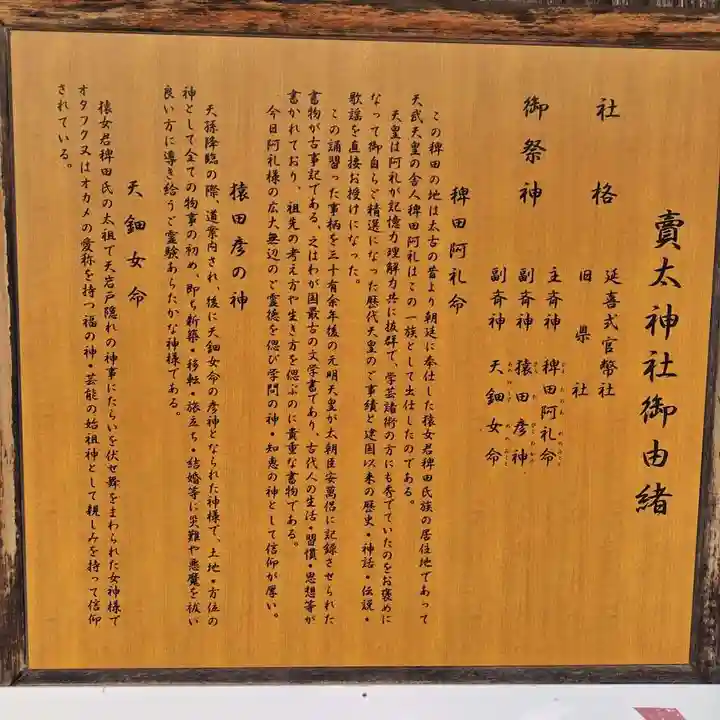 賣太神社御由緒
社格 延喜式官幣社
旧県社
御祭神 主斎神 稗田阿礼命
副斎神 猿田彦神
副斎神 天鈿女命
稗田阿礼命
この稗田の地は太古の昔より朝廷に奉仕した猿女君稗田氏族の居住地であって
天武天皇の舎人稗田阿礼はこの一族として出仕したのである。
天皇は阿礼が記憶力理解力共に抜群で、学芸諸術の方にも秀でていたのをお褒めに
なって御自らご精選になった歴代天皇のご事績と建国以来の歴史・神話・伝説・
歌謡を直接お授けになった。
この誦習った事柄を三十有余年後の元明天皇が太朝臣安萬侶に記録させられた
書物が古事記である。之はわが国最古の文学書であり、古代人の生活・習慣・思想等が
書かれており、祖先の考え方や生き方を偲ぶのに貴重な書物である。
今日阿礼様の広大無辺のご霊徳を偲び学問の神・知恵の神として信仰が厚い。
猿田彦の神
天孫降臨の際、道案内され、後に天鈿女命の彦神となられた神様で、土地・方位の
神として全ての物事の初め、即ち新築・移転・旅立ち・結婚等に災難や悪魔を祓い
良い方に導き給うご霊験あらたかな神様である。
天鈿女命
猿女君稗田氏の太祖で天岩戸隠れの神事にたらいを伏せ舞をまわられた女神様で
オタフク又はオカメの愛称を持つ福の神・芸能の始祖神として親しみを持って信仰
されている。